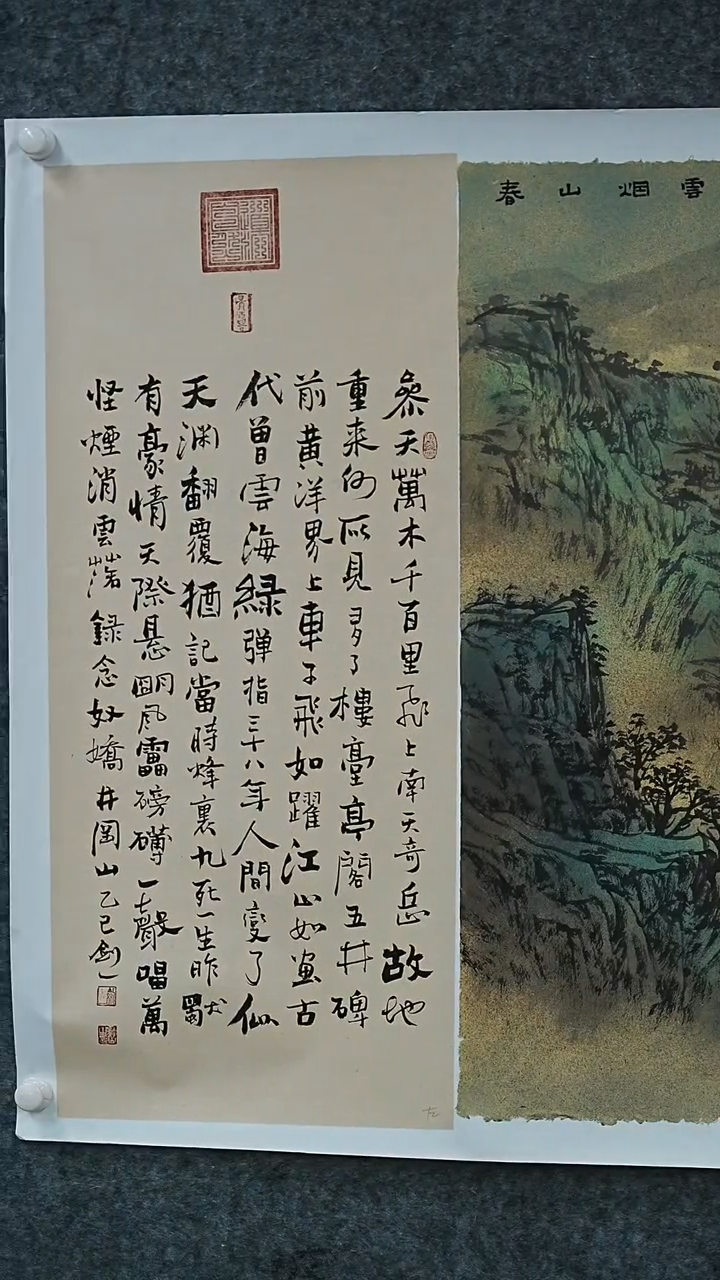 春山烟雲
參天萬木千百里飛上南天奇岳故地
重来何所見多了樓臺亭閣五井碑
前黄洋界上車子飛如躍江山如畫古
代曾雲海緑彈指三十八年人間變了似
天渊翻覆猶記當時烽裏九死一生昨獨
有豪情天際悬朙风雷磅礴一聲唱萬
怪煙消雲落錄念奴嬌井岡山乙巳劍一